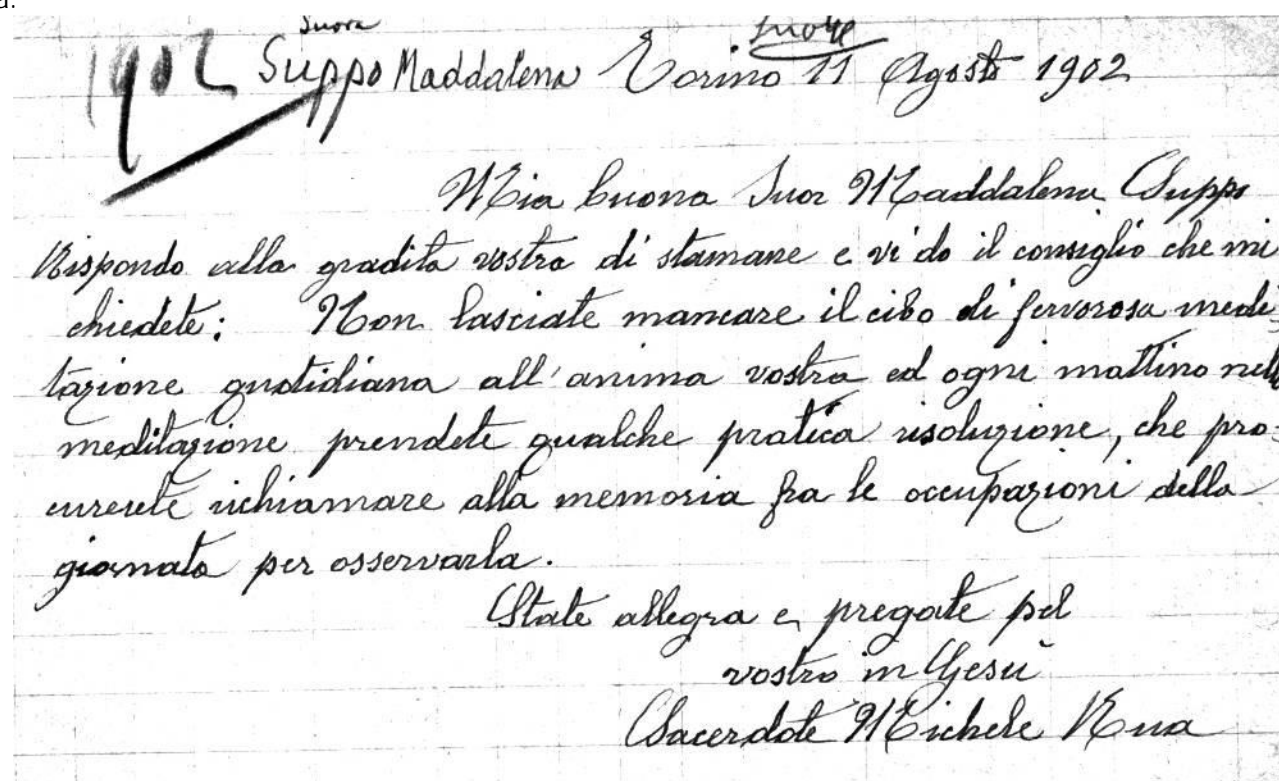 a.
Suora
suore
1902 Suppo Maddalena Torino 11 Agosto 1902
Mia buona Suor Maddalena Suppo
Rispondo alla gradita vostra di stamane e vi do il consiglio che mi
chiedete: Non lasciate mancare il cibo di fervorosa medi=
tazione quotidiana all'anima vostra ed ogni mattino nella
meditazione prendete qualche pratica risoluzione, che pro=
curerete richiamare alla memoria fra le occupazioni della
giornata per osservarla.
State allegra e pregate pel
vostro in Gesù
Sacerdote Michele Rua